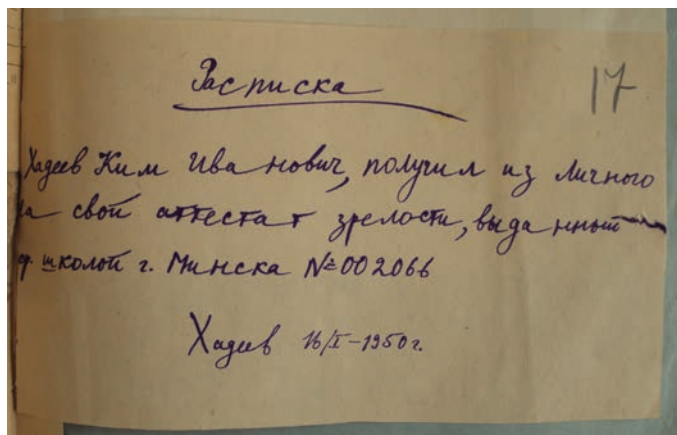 Расписка
17
Хадеев Ким Иванович, получил из личного
ла свой аттестат зрелости, выданный
ср. школой г. Минска №002066
Хадеев 16/X-1950г.